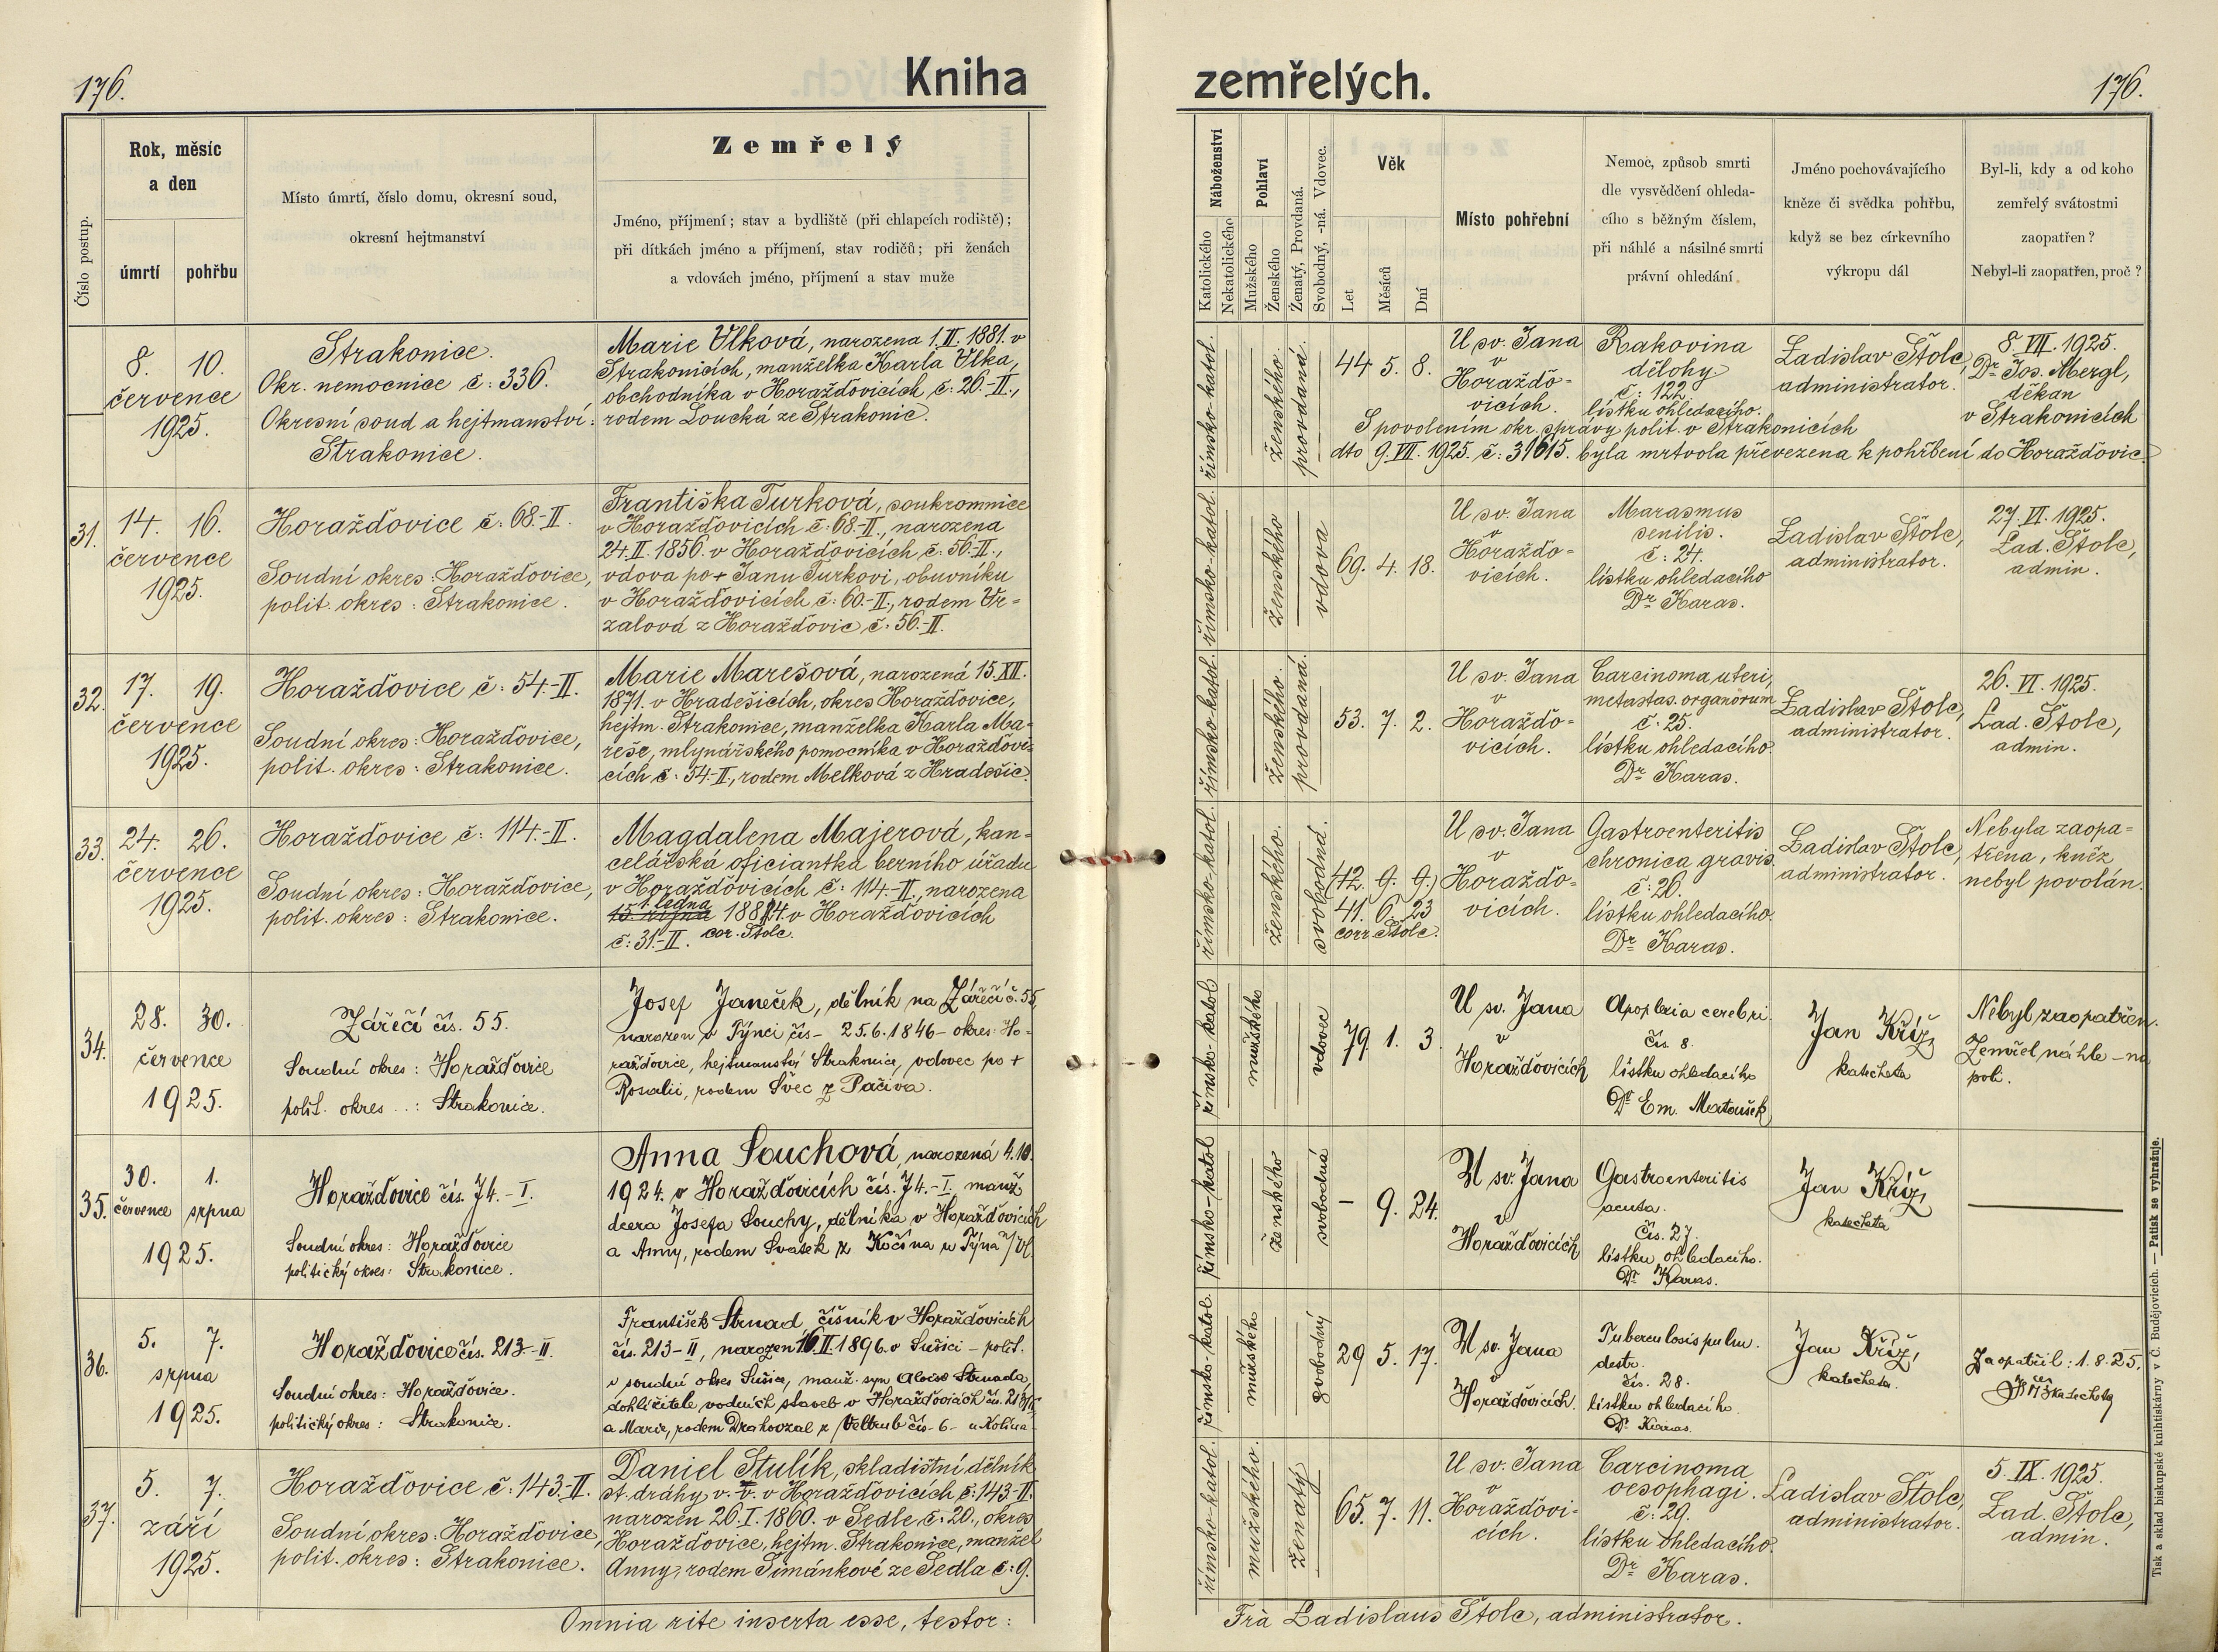 176.
Kniha
zemřelých.
176.
Číslo postup.
Rok, měsíc
a den
úmrtí
pohřbu
Místo úmrtí, číslo domu, okresní soud,
okresní hejtmanství
Zemřelý
Jméno, příjmení; stav a bydliště (při chlapcích rodiště);
při dítkách jméno a příjmení, stav rodičů; při ženách
a vdovách jméno, příjmení a stav muže
Náboženství
Katolického
Nekatolického
Pohlaví
Mužského
Ženského
Ženatý, Provdaná.
Svobodný, -ná. Vdovec.
Věk
Let
Měsíců
Dní
Místo pohřební
Nemoc, způsob smrti
dle vysvědčení ohleda-
cího s běžným číslem,
při náhlé a násilné smrti
právní ohledání
Jméno pochovávajícího
kněze či svědka pohřbu,
když se bez církevního
výkropu dál
Byl-li, kdy a od koho
zemřelý svátostmi
zaopatřen?
Nebyl-li zaopatřen, proč?
8. 10.
července
1925.
Strakonice.
Okr. nemocnice č: 336.
Okresní soud a hejtmanství:
Strakonice.
Marie Vlková, narozena 1.II.1881. v
Strakonicích, manželka Karla Vlka,
obchodníka v Horažďovicích, č: 26.-II.,
rodem Loucká ze Strakonic.
římsko-katol.
ženského.
provdaná.
44 5. 8.
U sv. Jana
v
Horažďo-
vicích.
Rakovina
dělohy.
č: 122.
lístku ohledacího.
Ladislav Štolc,
administrator.
8. VII. 1925.
Dr Jos. Mergl,
děkan
v Strakonicích
S povolením okr. správy polit. v Strakonicích
dto 9. VII. 1925. č: 31615. byla mrtvola převezena k pohřbení do Horažďovic.
31.
14. 16.
července
1925.
Horažďovice č: 68.-II.
Soudní okres: Horažďovice,
polit. okres: Strakonice.
Františka Turková, soukromnice
v Horažďovicích č: 68-II., narozena
24.II.1856. v Horažďovicích č: 56.-II.,
vdova po + Janu Turkovi, obuvníku
v Horažďovicích č: 60.-II., rodem Vr-
zalová z Horažďovic č: 56.-II.
římsko-katol.
ženského
vdova
69. 4. 18.
U sv. Jana
v
Horažďo-
vicích.
Marasmus
senilis.
č: 24.
lístku ohledacího
Dr Karas.
Ladislav Štolc,
administrator.
27. VI. 1925.
Lad. Štolc,
admin.
32.
17. 19.
července
1925.
Horažďovice č: 54.-II.
Soudní okres: Horažďovice,
polit. okres: Strakonice.
Marie Marešová, narozená 15.XII.
1871. v Hradešicích, okres Horažďovice,
hejtm. Strakonice, manželka Karla Ma-
reše, mlynářského pomocníka v Horažďovi-
cích č: 54-II., rodem Melková z Hradešic.
římsko-katol.
ženského.
provdaná.
53. 7. 2.
U sv. Jana
v
Horažďo-
vicích.
Carcinoma uteri,
metastas. organorum
č: 25.
lístku ohledacího.
Dr Karas.
Ladislav Štolc,
administrator.
26. VI. 1925.
Lad. Štolc,
admin.
33.
24. 26.
července
1925.
Horažďovice č: 114.-II.
Soudní okres: Horažďovice,
polit. okres: Strakonice.
Magdalena Majerová, kan-
celářská oficiantka berního úřadu
v Horažďovicích č: 114-II., narozena
1. ledna
15. října 1884. v Horažďovicích
č: 31.-II. cor. Štolc.
římsko-katol.
ženského.
svobodná.
42. 9. 9.)
41. 6. 23
corr Štolc.
U sv. Jana
v
Horažďo-
vicích.
Gastroenteritis
chronica gravis.
č: 26.
lístku ohledacího.
Dr Karas.
Ladislav Štolc,
administrator.
Nebyla zaopa-
třena, kněz
nebyl povolán.
34.
28. 30.
července
1925.
Zářečí čís. 55.
Soudní okres: Horažďovice
polit. okres ..: Strakonice.
Josef Janeček, dělník na Zářečí č. 55
narozen v Týnci čís- 25.6.1846- okres: Ho-
ražďovice, hejtmanství Strakonice, vdovec po +
Rosalii, rodem Švec z Pačiva.
římsko-katol
mužského
vdovec
79 1. 3.
U sv. Jana
v
Horažďovicích
Apoplexia cerebri.
čís. 8.
lístku ohledacího
Dr Em. Matoušek
Jan Kříž,
katecheta
Nebyl zaopatřen.
Zemřel náhle - na
poli.
35.
30. 1.
července srpna
1925.
Horažďovice čís. 74.-I.
Soudní okres: Horažďovice
politický okres: Strakonice.
Anna Souchová, narozená 4.10.
1924. v Horažďovicích čís. 74.-I. manž.
dcera Josefa Souchy, dělníka v Horažďovicích
a Anny, rodem Svatek z Kočína u Týna n/Vl.
římsko-katol
ženského
svobodná
- 9. 24.
U sv. Jana
v
Horažďovicích
Gastroenteritis
acuta.
čís. 27.
lístku ohledacího.
Dr Karas.
Jan Kříž,
katecheta
36.
5. 7.
srpna
1925.
Horažďovice čís. 213-II.
Soudní okres: Horažďovice.
politický okres: Strakonice.
František Strnad, číšník v Horažďovicích
čís. 213-II, narozen 16.II.1896. v Sušici - polit.
i soudní okres Sušice, manž. syn Aloise Strnada,
dohlížitele vodních staveb v Horažďovicích čís. 213/II
a Marie, rodem Drahovzal z Veltrub čís-6- u Kolína
římsko-katol.
mužského
svobodný
29 5. 17.
U sv. Jana
v
Horažďovicích.
Tuberculosis pulm.
destr.
čís. 28.
lístku ohledacího.
Dr Karas.
Jan Kříž,
katecheta.
Zaopatřil: 1.8.25.
katecheta
37.
5. 7.
září
1925.
Horažďovice č: 143-II.
Soudní okres: Horažďovice,
polit. okres: Strakonice.
Daniel Stulík, skladištní dělník
st. dráhy v. v. v Horažďovicích č: 143-II.
narozen 26.I.1860. v Sedle č: 20., okres
Horažďovice, hejtm. Strakonice, manžel
Anny, rodem Šimánkové ze Sedla č: 9.
římsko-katol.
mužského.
ženatý
65. 7. 11.
U sv. Jana
v
Horažďovi-
cích.
Carcinoma
oesophagi.
č: 29.
lístku ohledacího.
Dr Karas.
Ladislav Štolc,
administrator.
5. IX. 1925.
Lad. Štolc,
admin.
Omnia rite inserta esse, testor:
Fra Ladislaus Štolc, administrator.
Tisk a sklad biskupské knihtiskárny v Č. Budějovicích. — Patisk se vyhražuje.